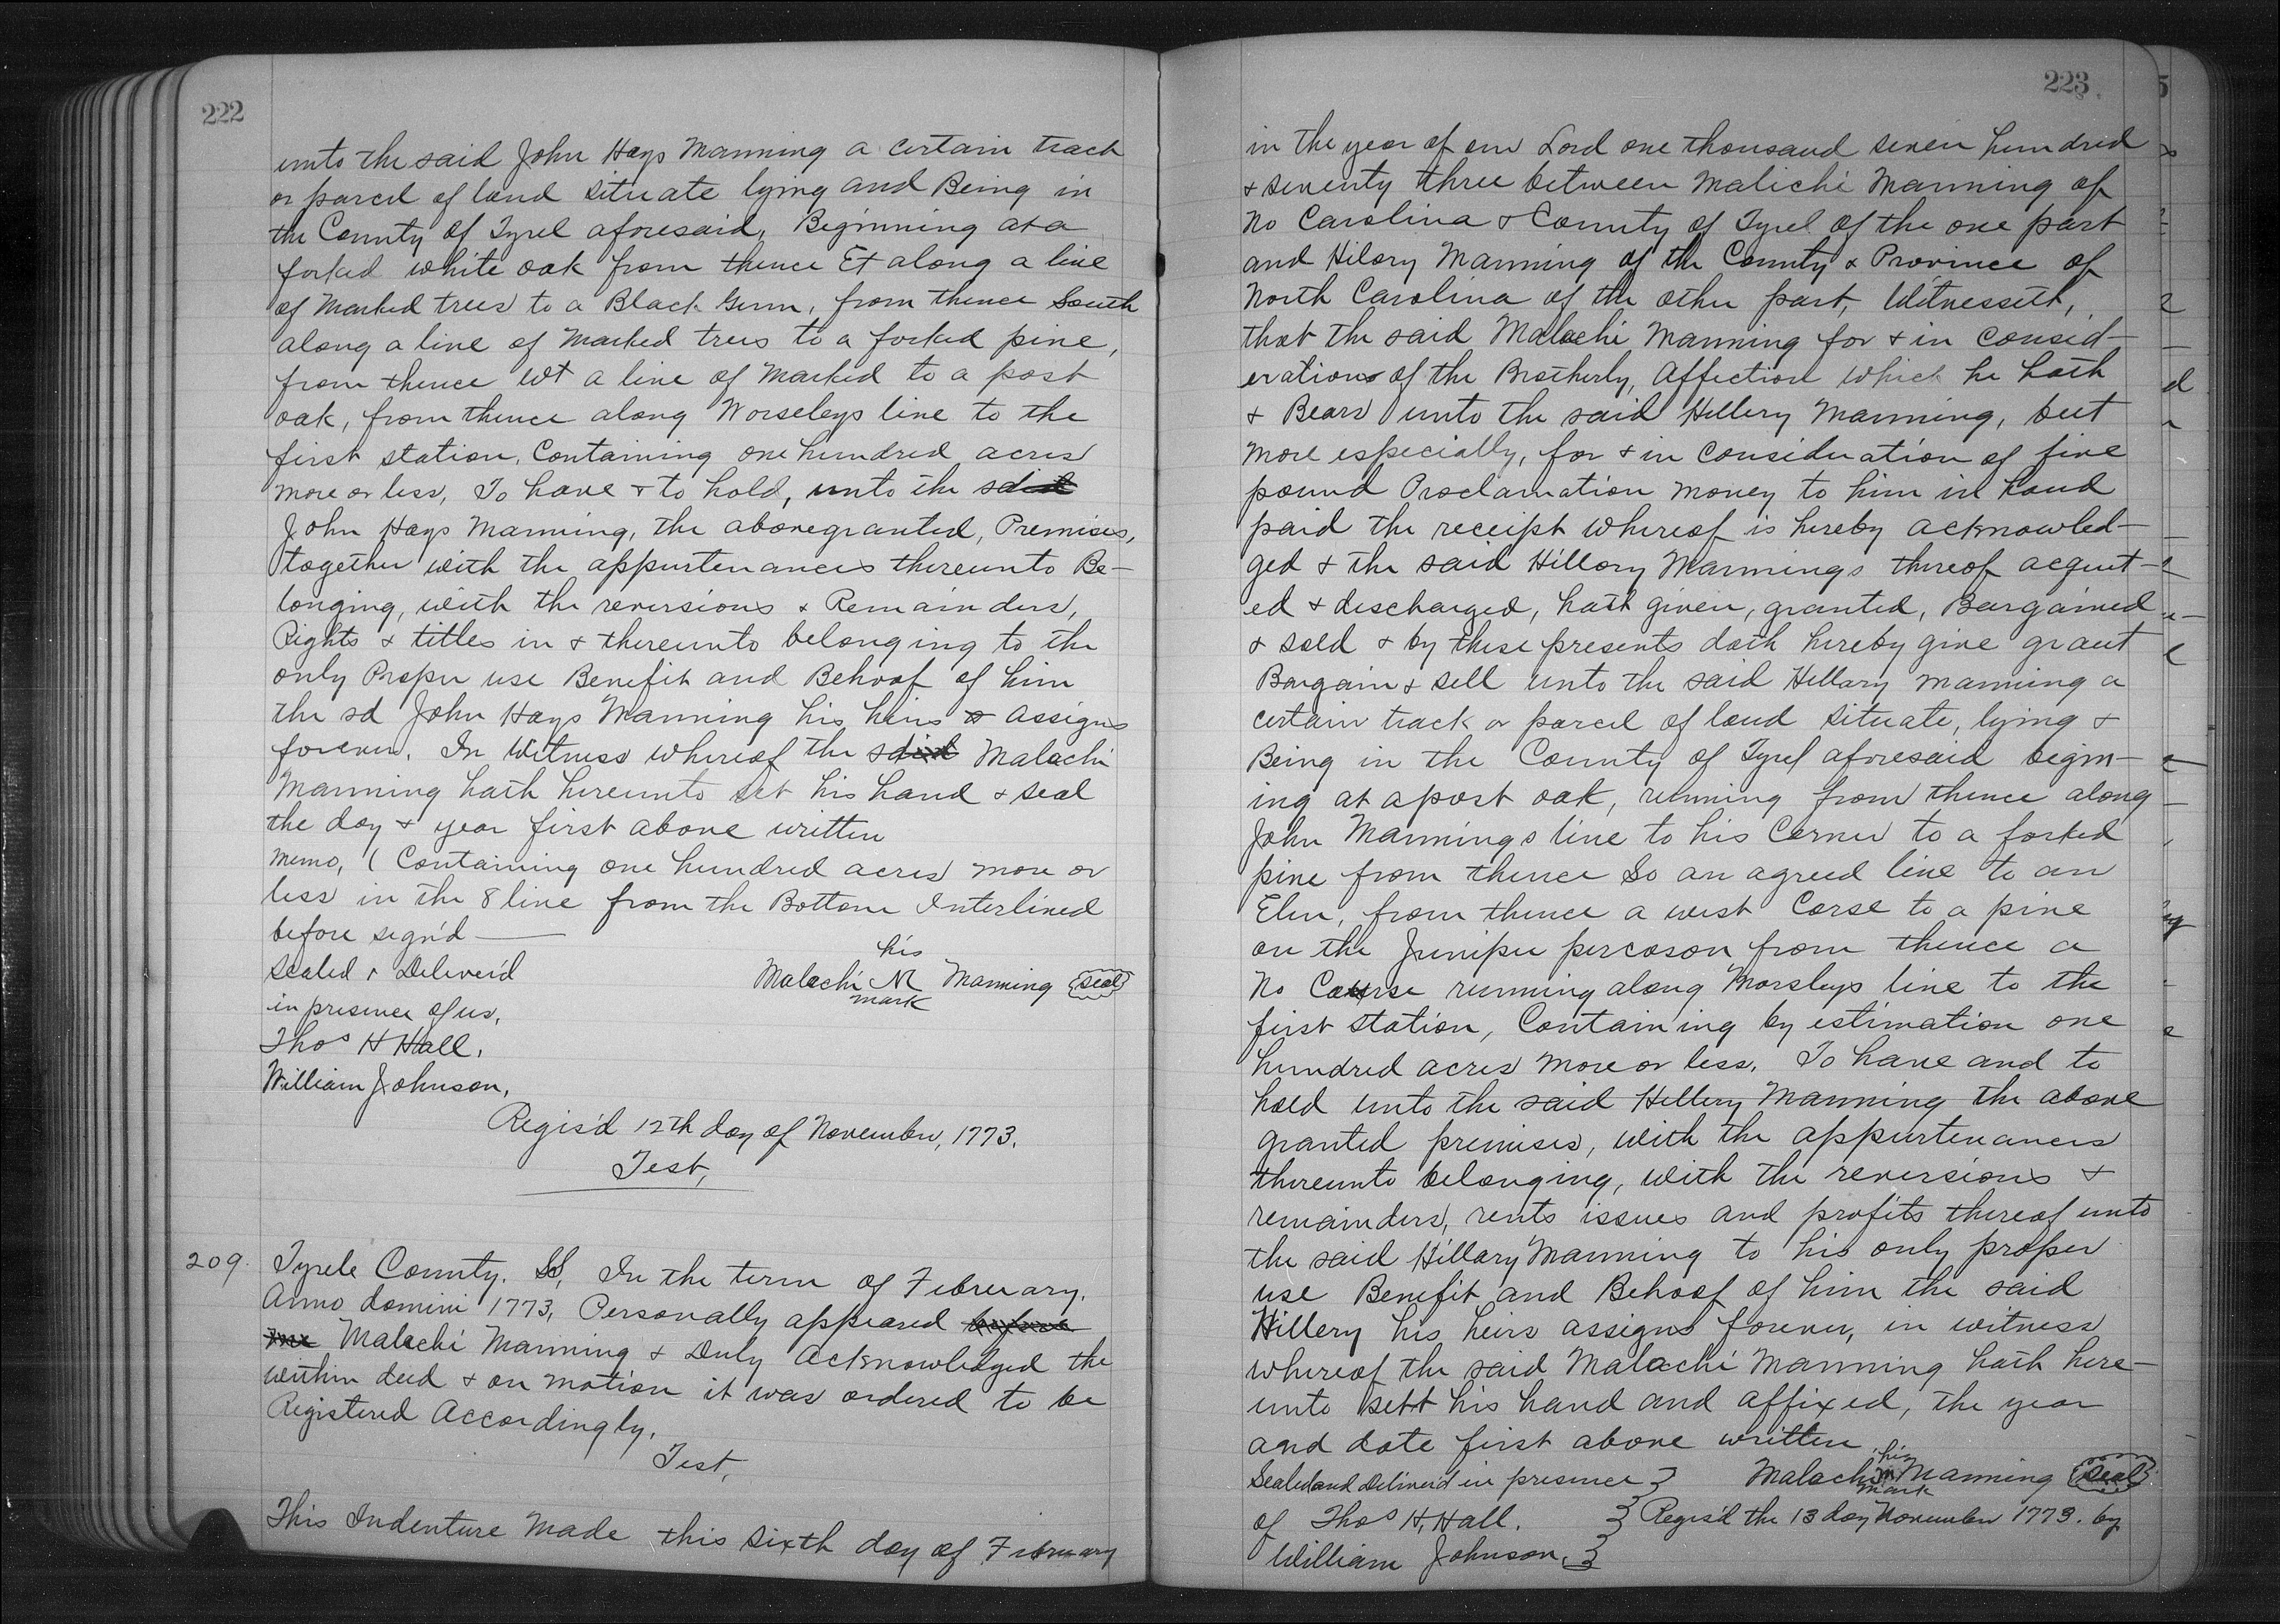 222
unto the said John Hays Manning a certain track
or parcel of land situate lying and Being in
the County of Tyrel aforesaid, Beginning at a
forked white oak from thence Et along a line
of Marked trees to a Black Gum, from thence South
along a line of Marked trees to a forked pine,
from thence Wt a line of Marked to a post
oak, from thence along Worseleys line to the
first station, Containing one hundred acres
more or less, To have & to hold, unto the sd
John Hays Manning, the abovegranted, Premises,
together with the appurtenances thereunto Be-
longing, with the reversions & Remainders,
Rights & titles in & thereunto belonging to the
only Proper use Benefit and Behoof of him
the sd John Hays Manning his heirs & assigns
forever. In Witness whereof the sd Malachi
Manning hath hereunto set his hand & seal
the day & year first above written
Memo, (Containing one hundred acres more or
less in the 8 line from the Bottom Interlined
before sign'd
Sealed & Deliver'd
in presence of us,
his
Malachi M Manning Seal
mark
Thos H Hall,
William Johnson,
Regis'd 12th day of November, 1773.
Test,
209. Tyrele County. SS, In the term of Februeary.
Anno domini 1773, Personally appeared before
me Malachi Manning & Duly Acknowledged the
within deed & on motion it was ordered to be
Registered Accordingly.
Test,
This Indenture Made this sixth day of February
223
in the year of our Lord one thousand seven hundred
& seventy three between Malichi Manning of
No Carolina & County of Tyrel of the one part
and Hilary Manning of the County & Province of
North Carolina of the other part, Witnesseth,
that the said Malachi Manning for & in consid-
erations of the Brotherly, Affection which he hath
& Bears unto the said Hillery Manning, but
more especially, for & in Consideration of five
pound Proclamation money to him in hand
paid the receipt whereof is hereby acknowled-
ged & the said Hillory Mannings thereof acquit-
ed & discharged, hath given, granted, Bargained
& sold & by these presents doth hereby give grant
Bargain & sell unto the said Hillary Manning a
certain track or parcel of land situate, lying &
Being in the County of Tyrel aforesaid begin-
ing at a post oak, running from thence along
John Mannings line to his Corner to a forked
pine from thence So an agreed line to an
Elm, from thence a west Corse to a pine
on the Juniper percoson from thence a
No Course running along Morsleys line to the
first station, Containing by estimation one
hundred acres more or less. To have and to
hold unto the said Hillery Manning the above
granted premises, with the appurtenances
thereunto belonging, with the reversions &
remainders, rents issues and profits thereof unto
the said Hillary Manning to his only proper
use Benefit and Behoof of him the said
Hillery his heirs assigns forever, in witness
whereof the said Malachi Manning hath here-
unto sett his hand and affixed, the year
and date first above written
his
Sealed and Deliver'd in presence } Malachi M Manning Seal
mark
of Thos H, Hall. } Regis'd the 13 day November 1773. by
William Johnson, }